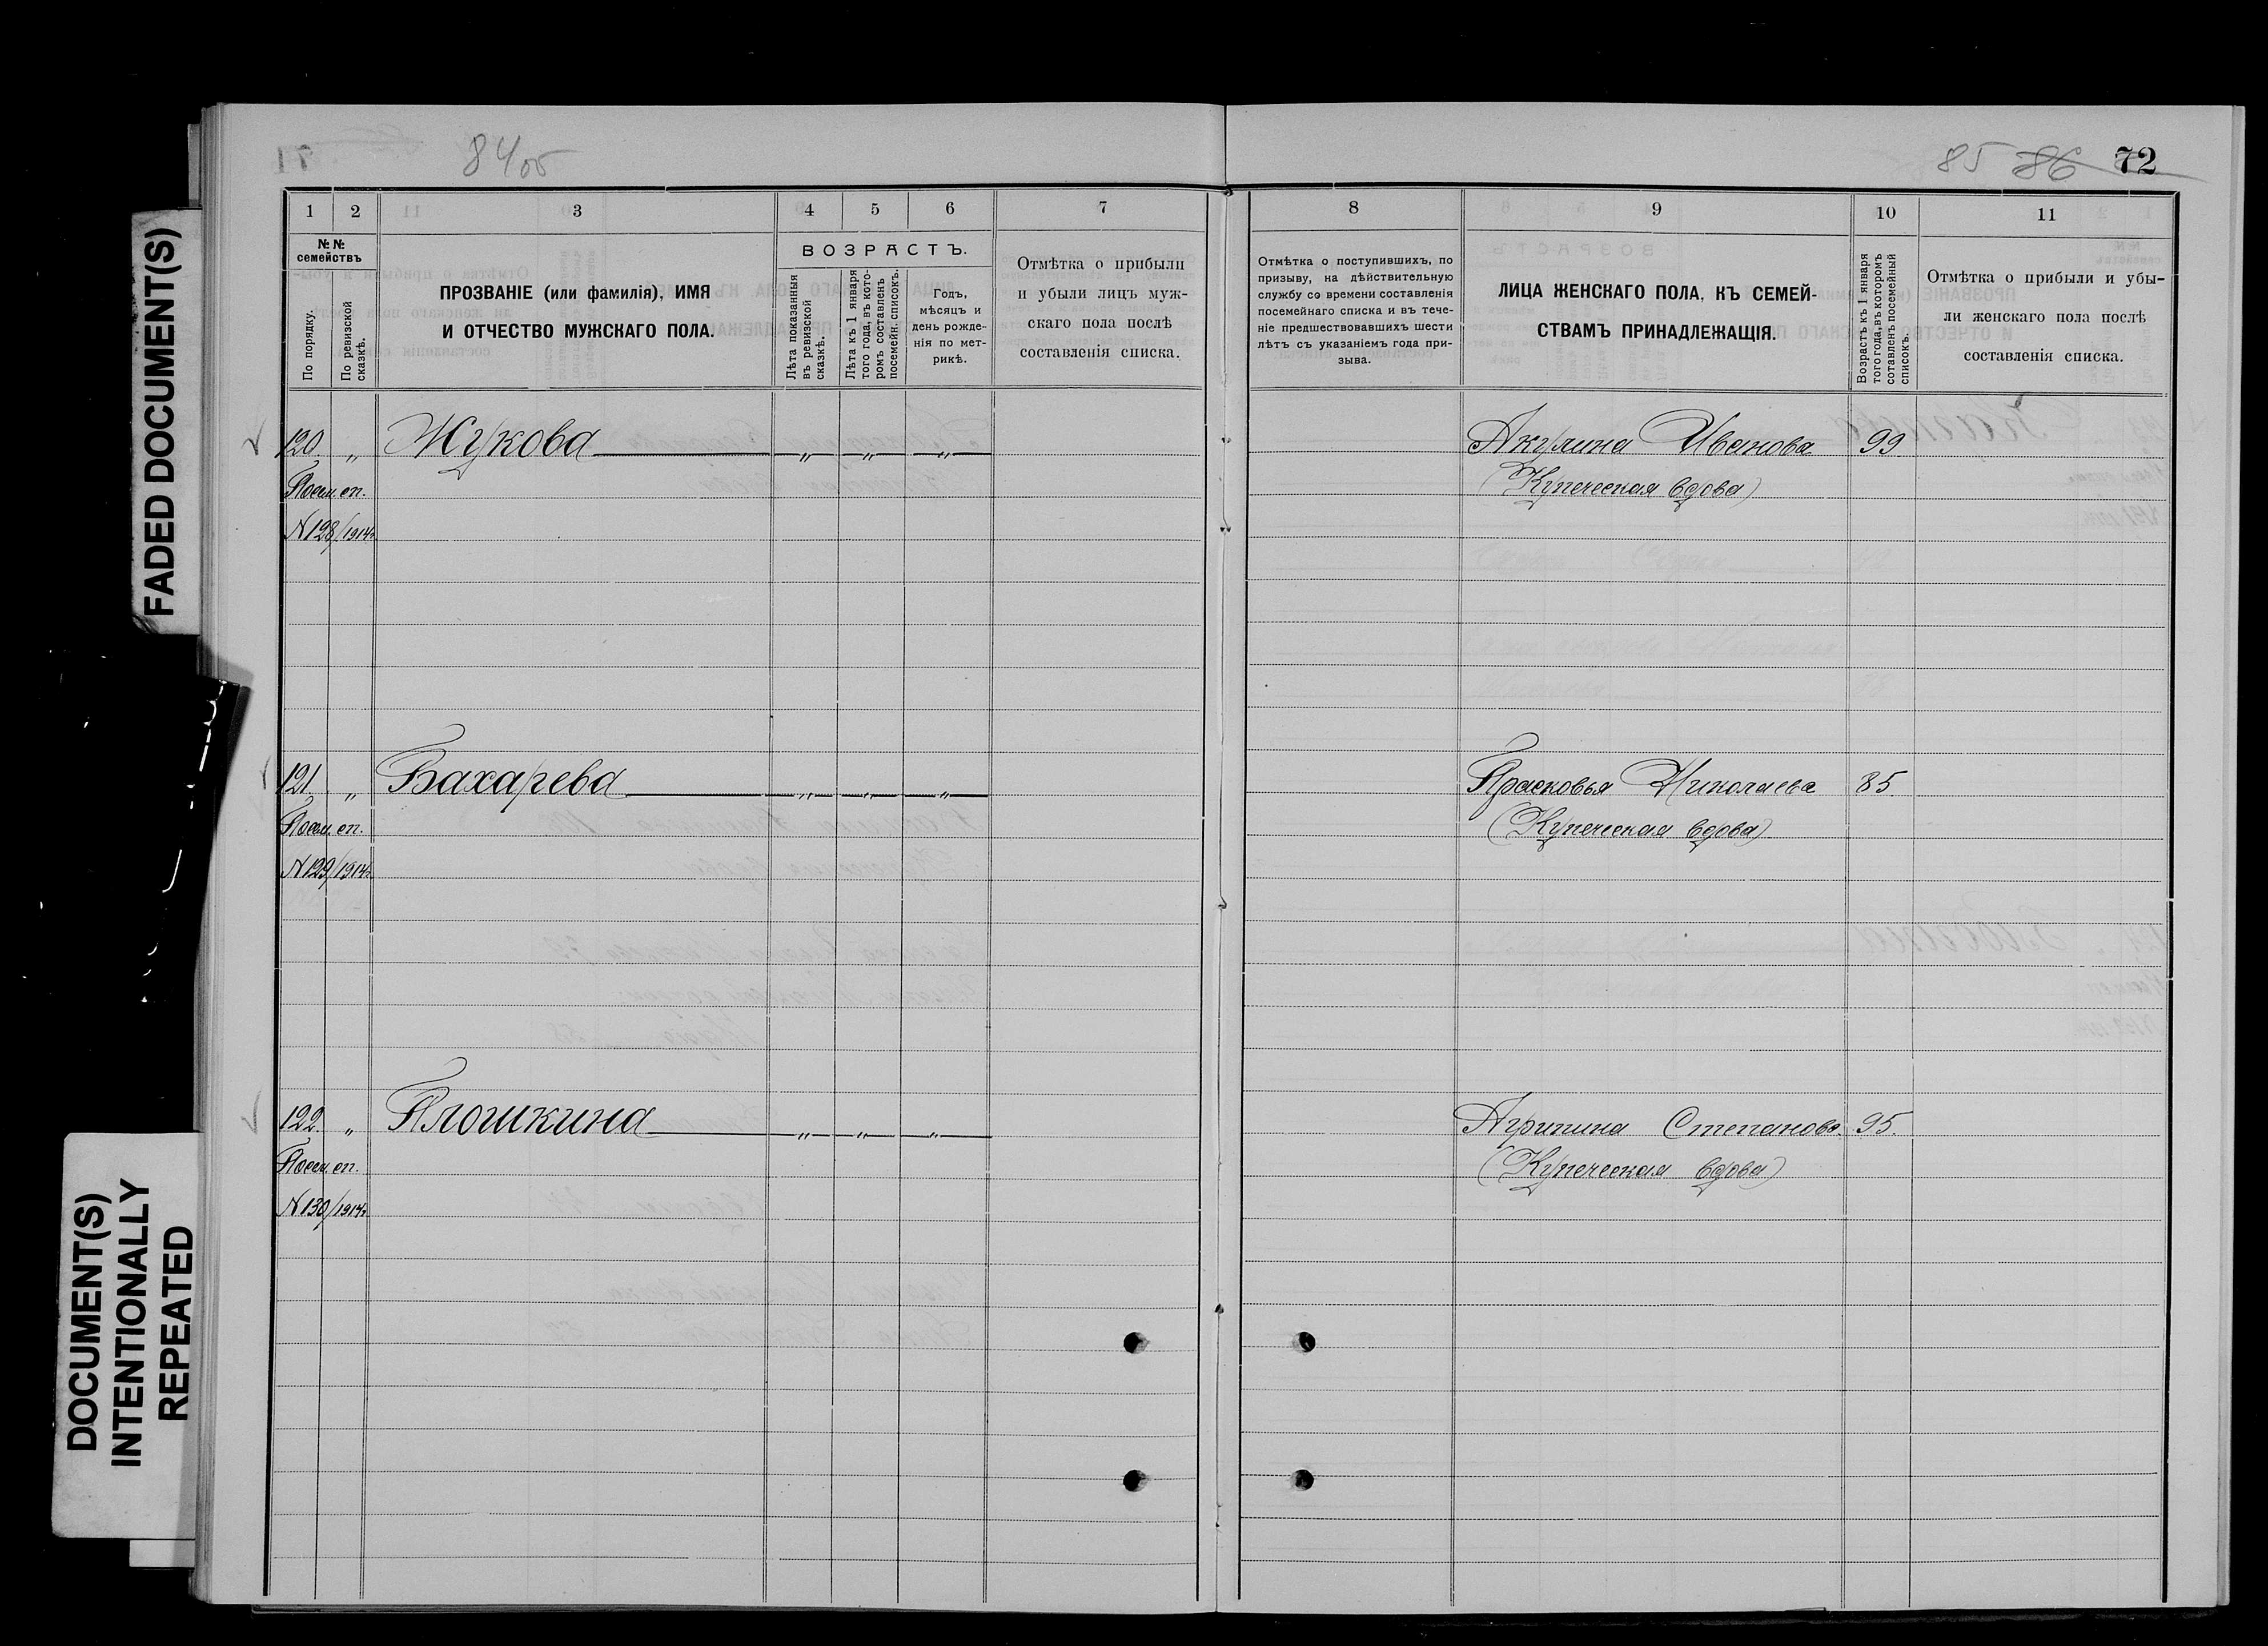 FADED DOCUMENT(S)
DOCUMENT(S)
INTENTIONALLY
REPEATED
84об
85 86 72
1 2 3 4 5 6 7
№№
семействъ
По порядку.
По ревизской
сказкѣ.
ПРОЗВАНІЕ (или фамилія), ИМЯ
И ОТЧЕСТВО МУЖСКАГО ПОЛА.
ВОЗРАСТЪ.
Лѣта показанныя
въ ревизской
сказкѣ.
Лѣта къ 1 января
того года, въ кото-
ромъ составленъ
посемейн. списокъ.
Годъ,
мѣсяцъ и
день рожде-
нія по мет-
рикѣ.
Отмѣтка о прибыли
и убыли лицъ муж-
скаго пола послѣ
составленія списка.
8 9 10 11
Отмѣтка о поступившихъ, по
призыву, на дѣйствительную
службу со времени составленія
посемейнаго списка и въ тече-
ніе предшествовавшихъ шести
лѣтъ съ указаніемъ года при-
зыва.
ЛИЦА ЖЕНСКАГО ПОЛА, КЪ СЕМЕЙ-
СТВАМЪ ПРИНАДЛЕЖАЩІЯ.
Возрастъ къ 1 января
того года, въ которомъ
сотавленъ посемейный
списокъ.
Отмѣтка о прибыли и убы-
ли женскаго пола послѣ
составленія списка.
120. „ Жукова „ „ „ Акулина Иванова 99
Посем. сп. (Купеческая вдова)
N128/1914г.
121. „ Бахарева „ „ „ Прасковья Николаева 85.
Посем. сп. (Купеческая вдова)
N129/1914г.
122. „ Плошкина „ „ „ Агрипина Степанова. 95.
Посем. сп. (Купеческая вдова)
N130/1914г.